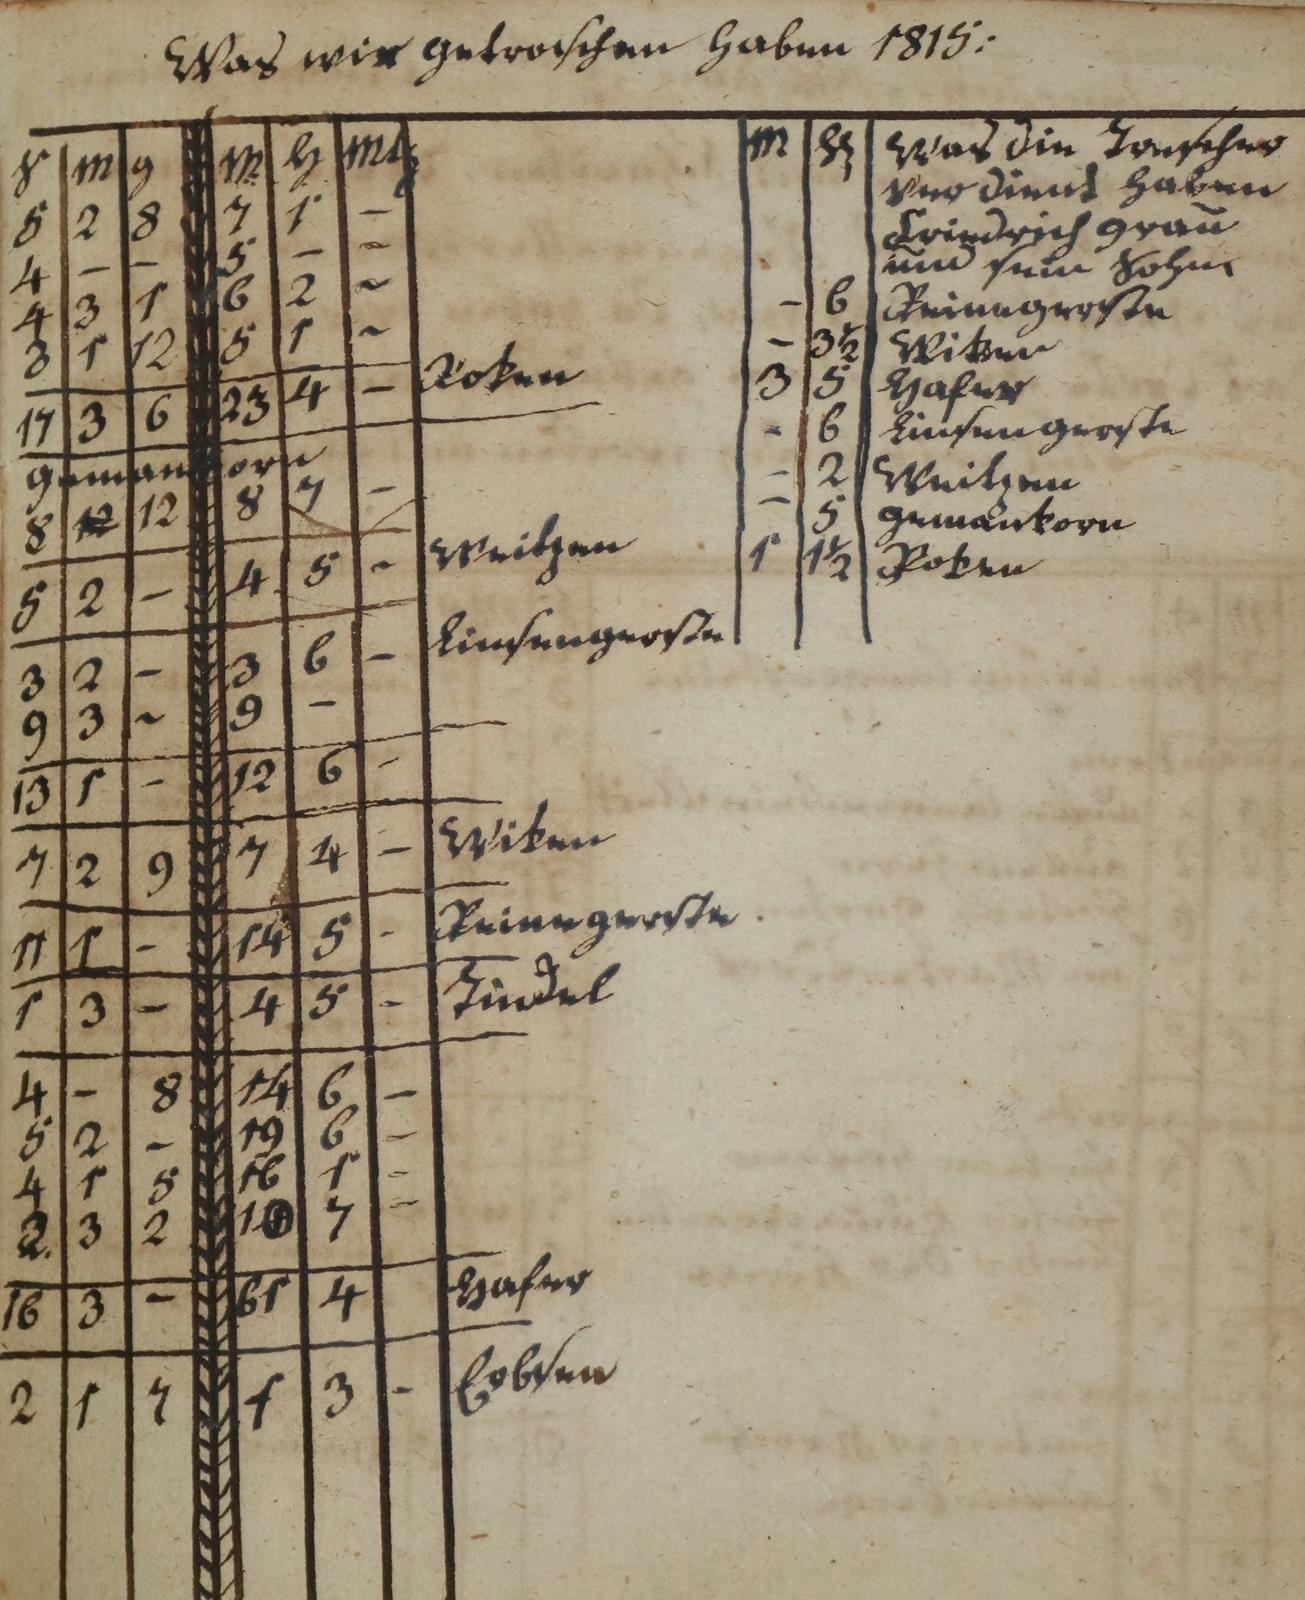 Was wir getroischen haben 1815:
ß m g M H Mtz
5 2 8 7 1 –
4 – – 5 – –
4 3 1 6 2 ~
3 1 12 5 1 ~
17 3 6 23 4 – Roken
gemankorn
8 12 8 7 –
5 2 – 4 5 – Weitzen
3 2 – 3 6 – Linsengerste
9 3 ~ 9 –
13 1 – 12 6 –
7 2 9 7 4 – Wiken
11 1 – 14 5 - Reinegerste
1 3 – 4 5 – Tindel
4 – 8 14 6 –
5 2 – 19 6 –
4 1 5 16 1 –
3 2 7 –
16 3 – 61 4 Hafer
2 1 7 1 3 - Erbsen
M H Was die Trescher
verdient haben
Friedrich grau
und sein Sohn
– 6 Reinegerste
– 3½ Wiken
3 5 Hafer
- 6 Linsengerste
– 2 Weitzen
– 5 gemankorn
1 1½ Roken